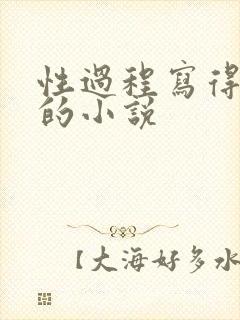 性過程寫得
的小説
【大海好多水